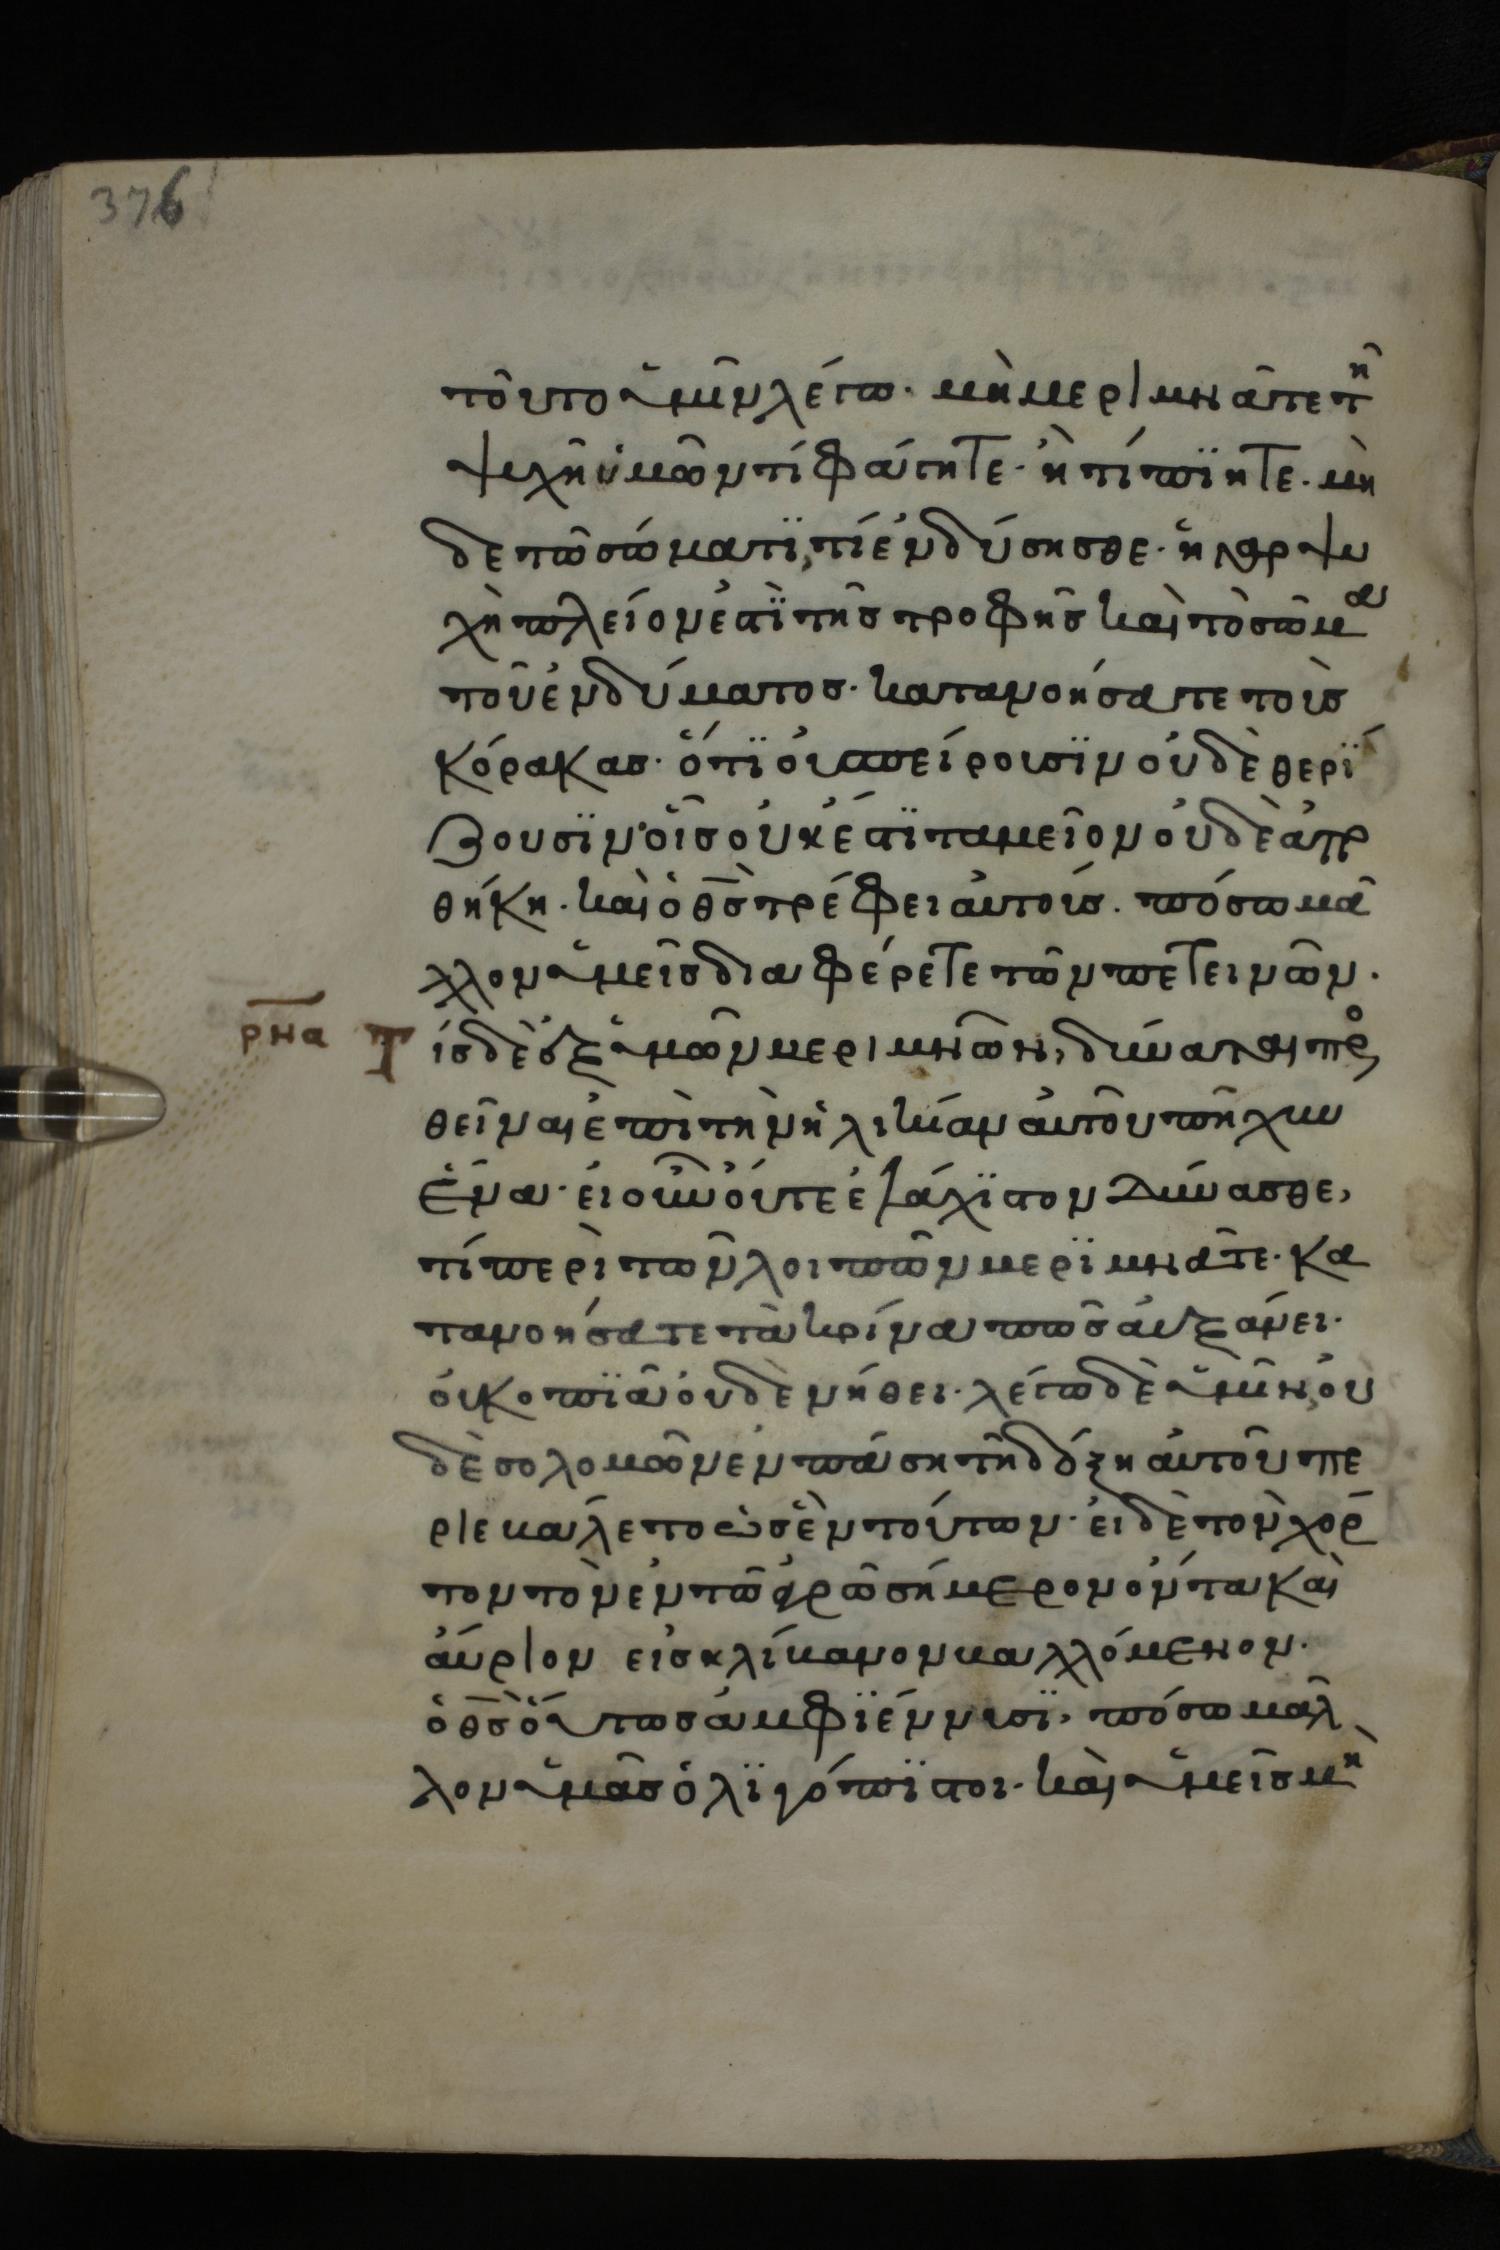 376
τοῦτο ὑμῖν λέγω· μὴ μεριμνᾶτε τῆ
ψυχῆ ὑμῶν τί φάγητε· ἢ τί πϊητε· μὴ
δε τῶ σώματϊ, τί ἐνδύσησθε· ἡ γὰρ ψυ
χὴ πλεῖον ἐστϊ τῆς τροφῆς καὶ τὸ σῶμα
τοῦ ἐνδύματος· κατανοήσατε τοὺς
κόρακας· ὅτϊ οὐ σπείρουσϊν οὐδὲ θερϊ
ζουσϊν· οἷς οὐκ ἔστϊ ταμεῖον οὐδὲ ἀπο
θήκη· καὶ ὁ θς τρέφει αὐτούς· πόσω μᾶ
λλον ὑμεῖς διαφέρετε τῶν πετεινῶν·
ρνα Τίς δὲ ἐξ ὑμῶν μεριμνῶν, δύναται προς
θεῖναι ἐπὶ τὴν ἡλικίαν αὐτοῦ πῆχυν
ἕνα· εἰ οὖν οὔτε ἐλάχϊστον δύνασθε,
τί περὶ τῶν λοιπῶν μερϊμνᾶτε· κα
τανοήσατε τὰ κρίνα πῶς αὐξάνει·
οὐ κοπϊᾶ οὐδὲ νήθει· λέγω δὲ ὑμῖν, οὐ
δὲ σολομῶν ἐν πάση τῆ δόξη αὐτοῦ πε
ριεβάλετο ὡς ἓν τούτων· εἰ δὲ τὸν χόρ
τον τὸν ἐν τῶ ἀγρῶ σήμερον ὄντα καὶ
αὔριον εἰς κλίβανον βαλλόμενον·
ὁ θς οὕτως ἀμφϊέννυσϊ, πόσω μᾶλ
λον ὑμᾶς ὀλϊγόπϊστοι· καὶ ὑμεῖς μὴ